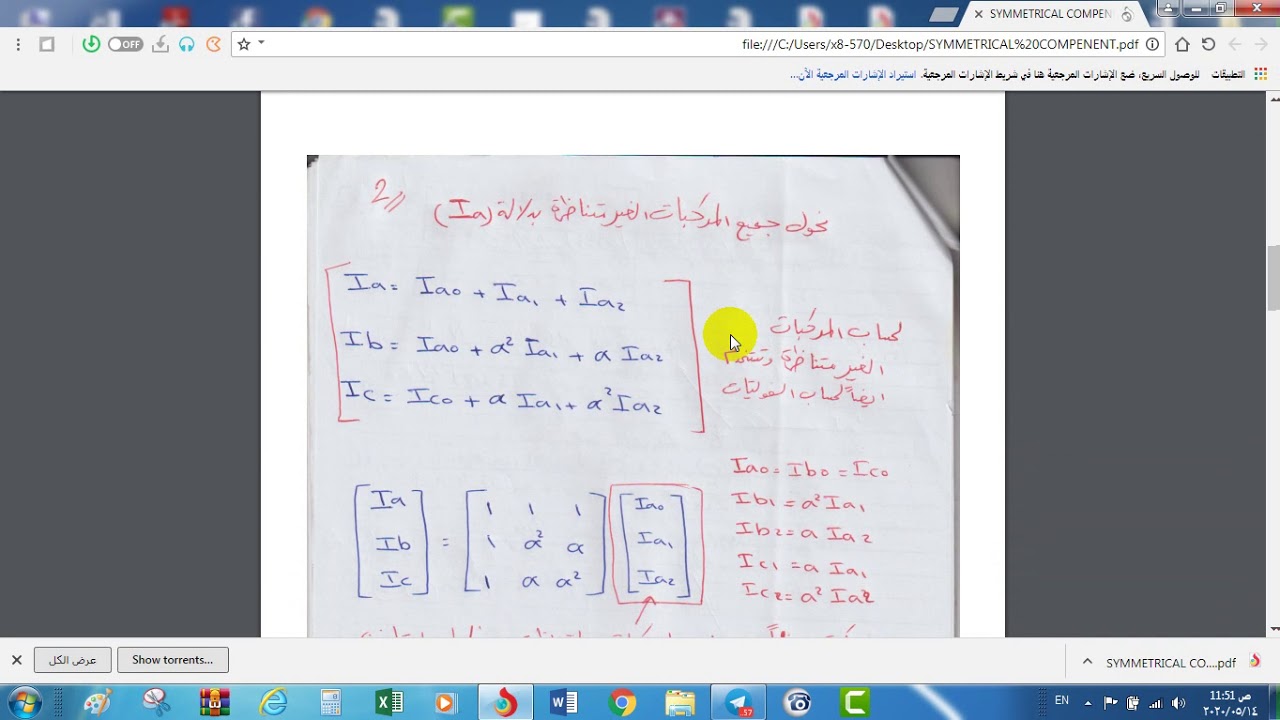 SYMMETRICAL COMPEN
OFF
file:///C:/Users/x8-570/Desktop/SYMMETRICAL%20COMPENENT.pdf
التطبيقات للوصول السريع، ضع الإشارات المرجعية هنا في شريط الإشارات المرجعية. استيراد الإشارات المرجعية الآن...
2//
نحول جميع المركبات الغير متناظرة بدلالة (Ia)
Ia = Iao + Ia1 + Ia2
Ib = Iao + a² Ia1 + a Ia2
Ic = Ico + a Ia1 + a² Ia2
لحساب المركبات
الغير متناظرة وتستخدم
ايضاً لحساب الفولتيات
[Ia] [1 1 1] [Iao]
[Ib] = [1 a² a] [Ia1]
[Ic] [1 a a²] [Ia2]
Iao = Ibo = Ico
Ib1 = a² Ia1
Ib2 = a Ia2
Ic1 = a Ia1
Ic2 = a² Ia2
عرض الكل
Show torrents...
SYMMETRICAL CO....pdf
57
EN
11:51 ص
٢٠٢٠/٠٥/١٤